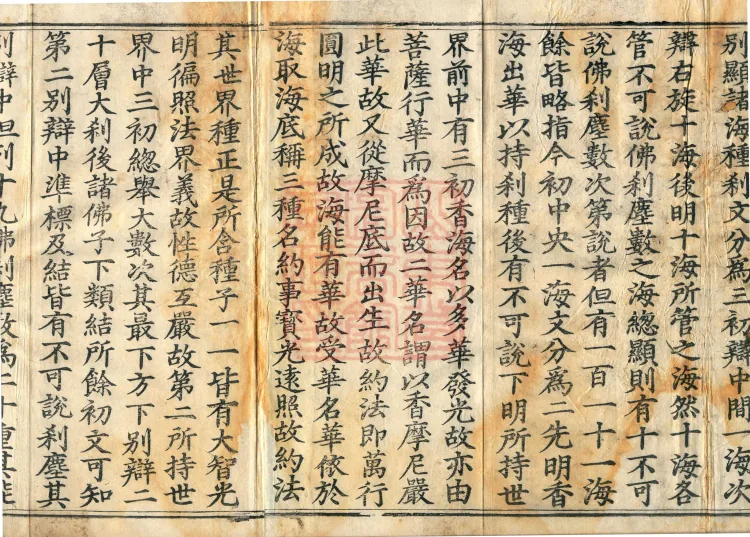 別顯諸海種刹文分爲三初辯中間一海次
辯右旋十海後明十海所管之海然十海各
管不可說佛刹塵數之海總顯則有十不可
說佛刹塵數次第說者但有一百一十一海
餘皆略指今初中央一海文分爲二先明香
海出華以持刹種後有不可說下明所持世
界前中有三初香海名以多華發光故亦由
菩薩行華而爲因故二華名謂以香摩尼嚴
此華故又從摩尼底而出生故約法即萬行
圓明之所成故海能有華故受華名華依於
海取海底稱三種名約事寶光遠照故約法
其世界種正是所含種子一一皆有大智光
明徧照法界義故性德互嚴故第二所持世
界中三初總舉大數次其最下方下別辯二
十層大刹後諸佛子下類結所餘初文可知
第二別辯中準標及結皆有不可說刹塵其
別辯中但列十九佛刹塵故爲二十重其能